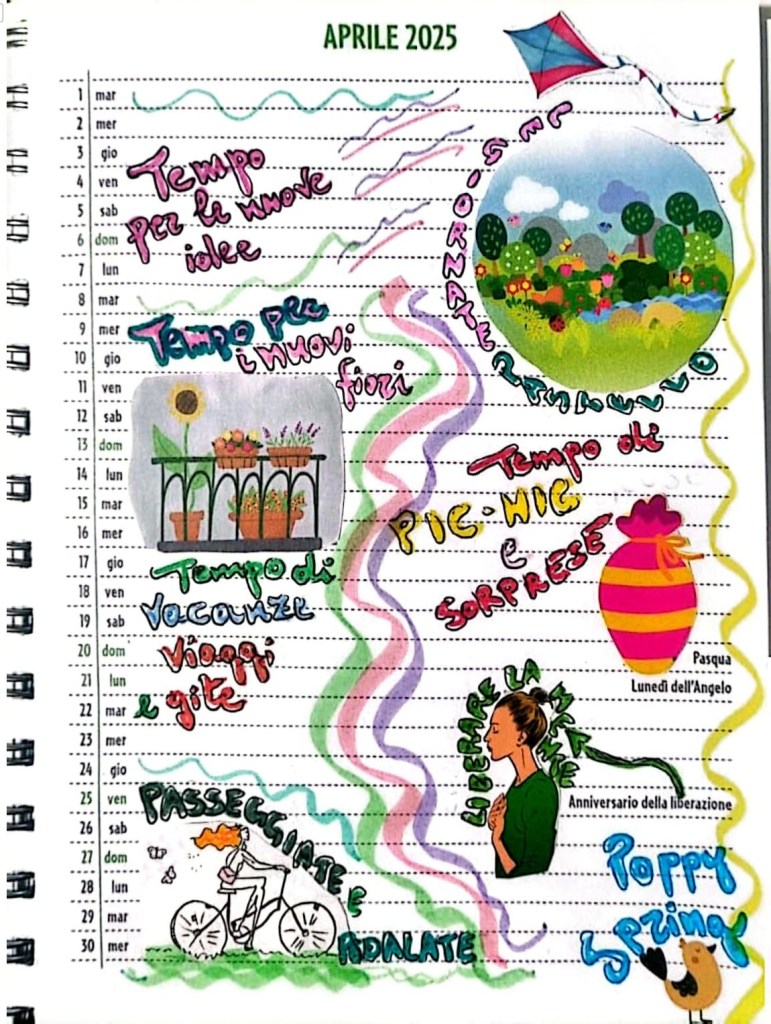 APRILE 2025
1 mar
2 mer
3 gio
4 ven
5 sab
6 dom
7 lun
8 mar
9 mer
10 gio
11 ven
12 sab
13 dom
14 lun
15 mar
16 mer
17 gio
18 ven
19 sab
20 dom
21 lun
22 mar
23 mer
24 gio
25 ven
26 sab
27 dom
28 lun
29 mar
30 mer
Tempo
per le nuove
idee
Tempo per
i nuovi
fiori
Tempo di
vacanze
viaggi
e gite
PASSEGGIATE E
GIORNATE
Tempo di
PIC-NIC
e
SORPRESE
Pasqua
Lunedì dell'Angelo
LIBERARE LA MENTE
Anniversario della liberazione
Poppy
Spring